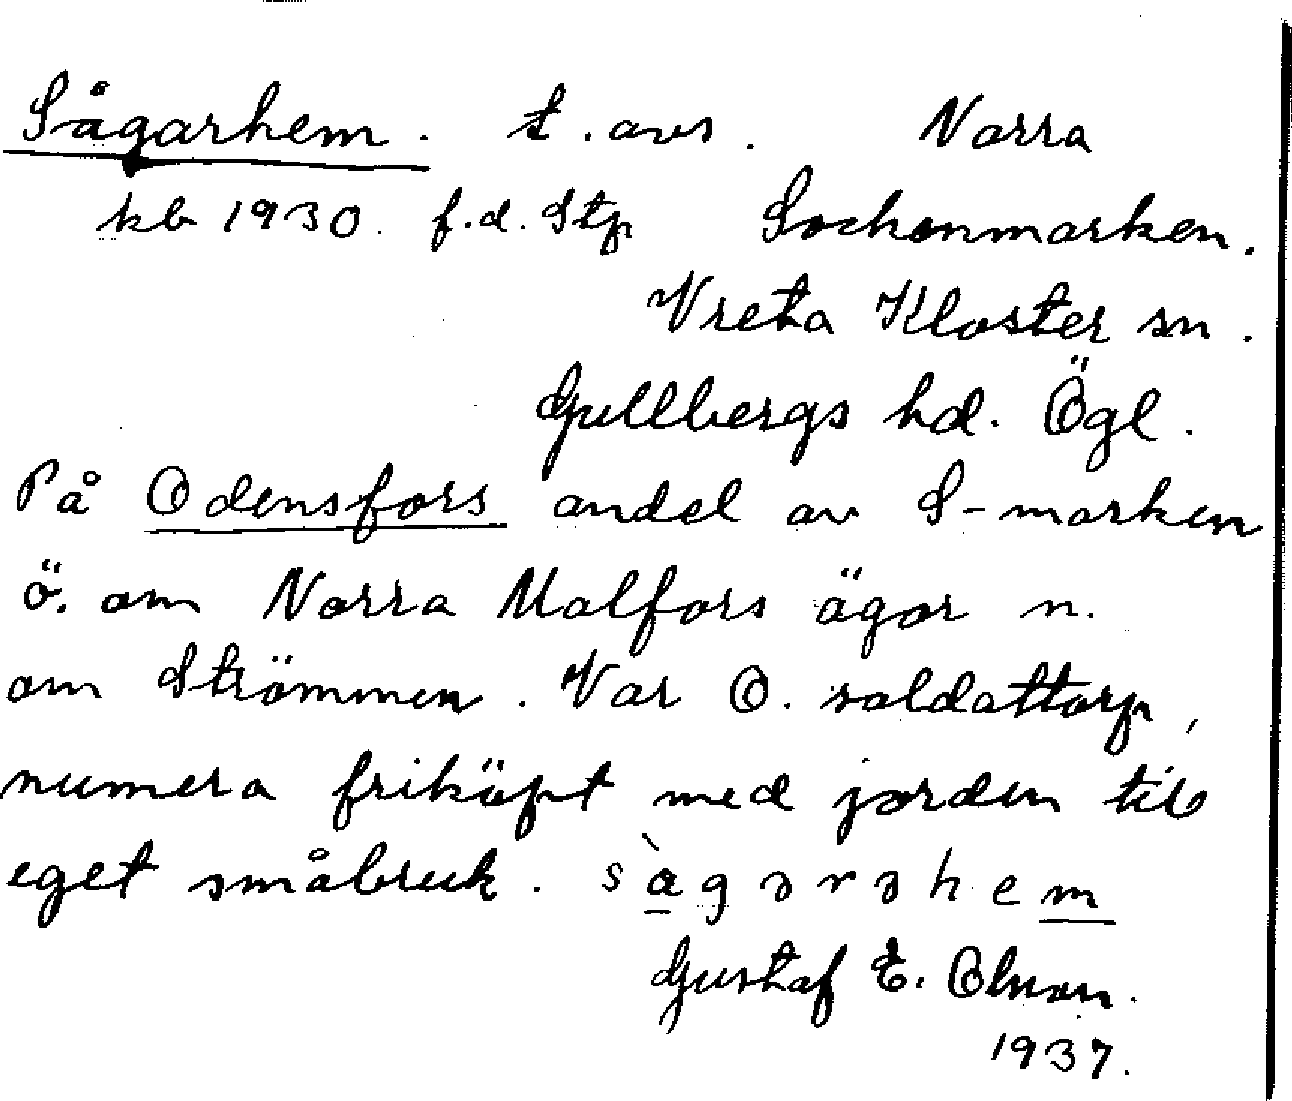 Sågarhem. t. avs. Norra
kb 1930. f.d. Stp Sockenmarken.
Vreta Kloster sn.
Gullbergs hd. Ögl.
På Odensfors andel av S-marken
ö. om Norra Malfors ägor n.
om Strömmen. Var O. soldattorp,
numera friköpt med jorden till
eget småbruk. sàgərəhem
Gustaf E. Olsson.
1937.